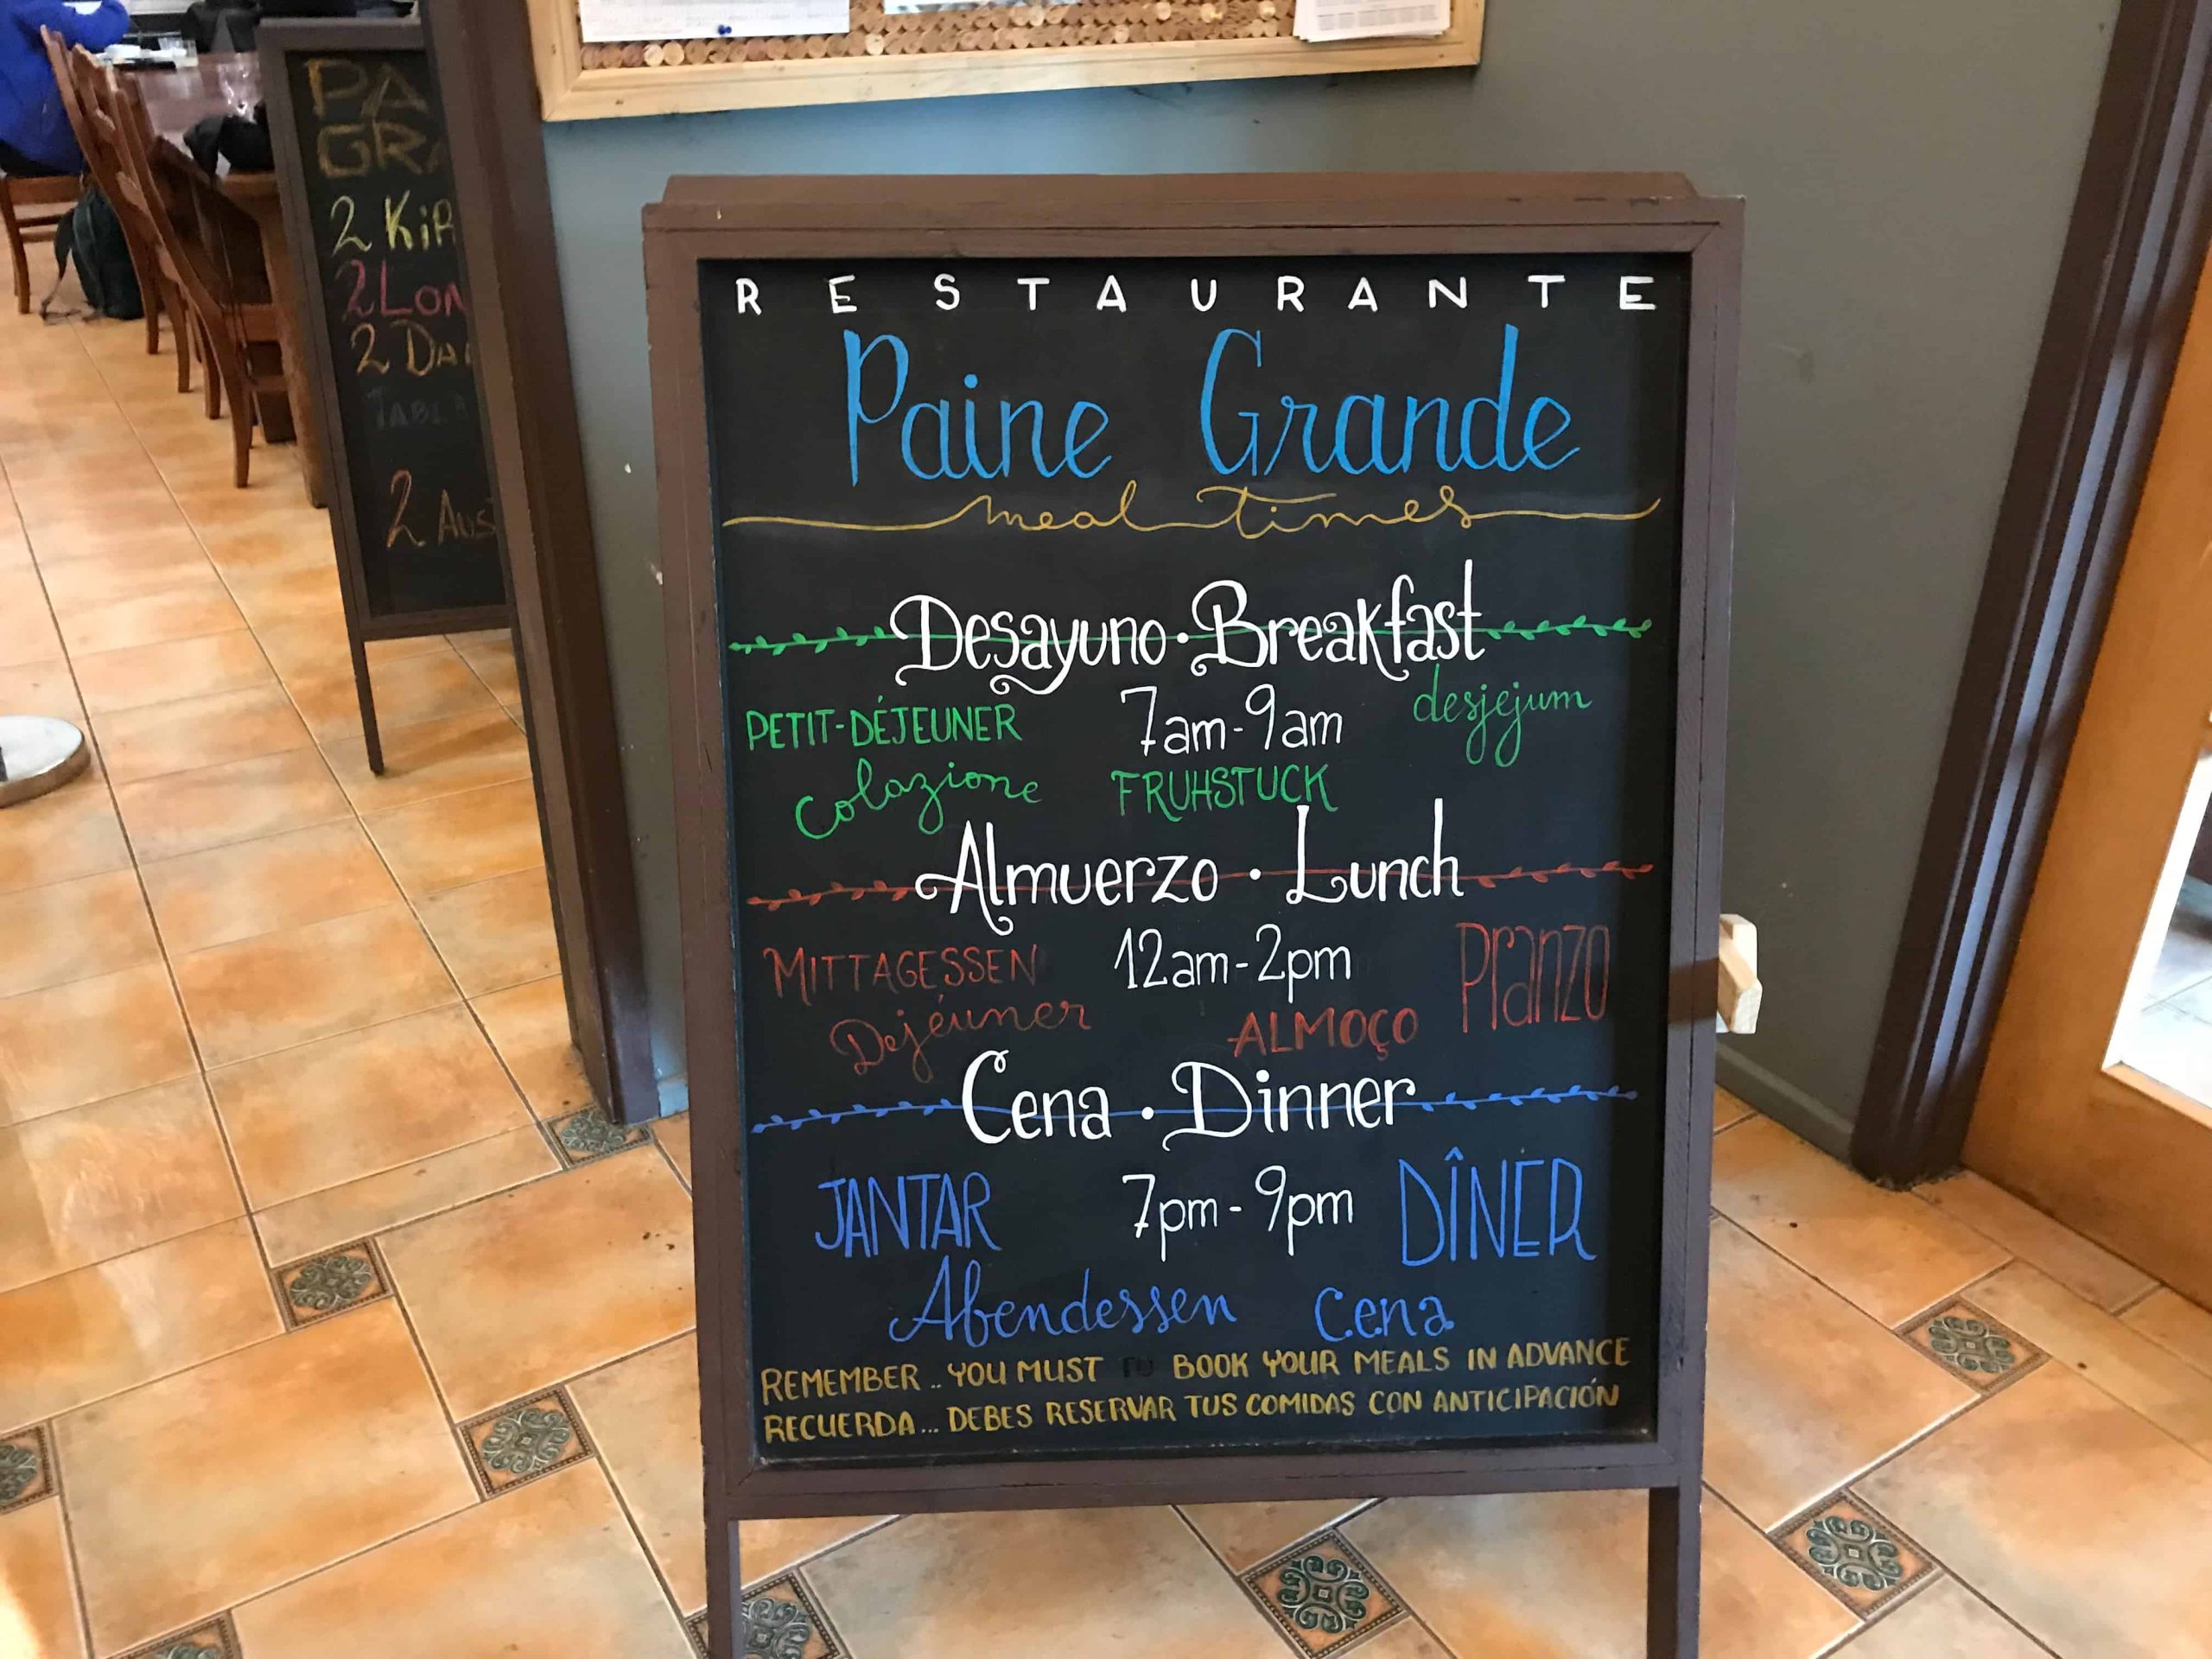 PA
GR
2 KiR
2 LON
2 DA
TABLA
2 AUS
RESTAURANTE
Paine Grande
meal times
Desayuno · Breakfast
PETIT-DÉJEUNER 7am-9am desjejum
Colazione FRUHSTUCK
Almuerzo · Lunch
MITTAGESSEN 12am-2pm Pranzo
Dejéuner ALMOÇO
Cena · Dinner
JANTAR 7pm-9pm DÎNER
Abendessen Cena
REMEMBER .. YOU MUST TO BOOK YOUR MEALS IN ADVANCE
RECUERDA... DEBES RESERVAR TUS COMIDAS CON ANTICIPACIÓN